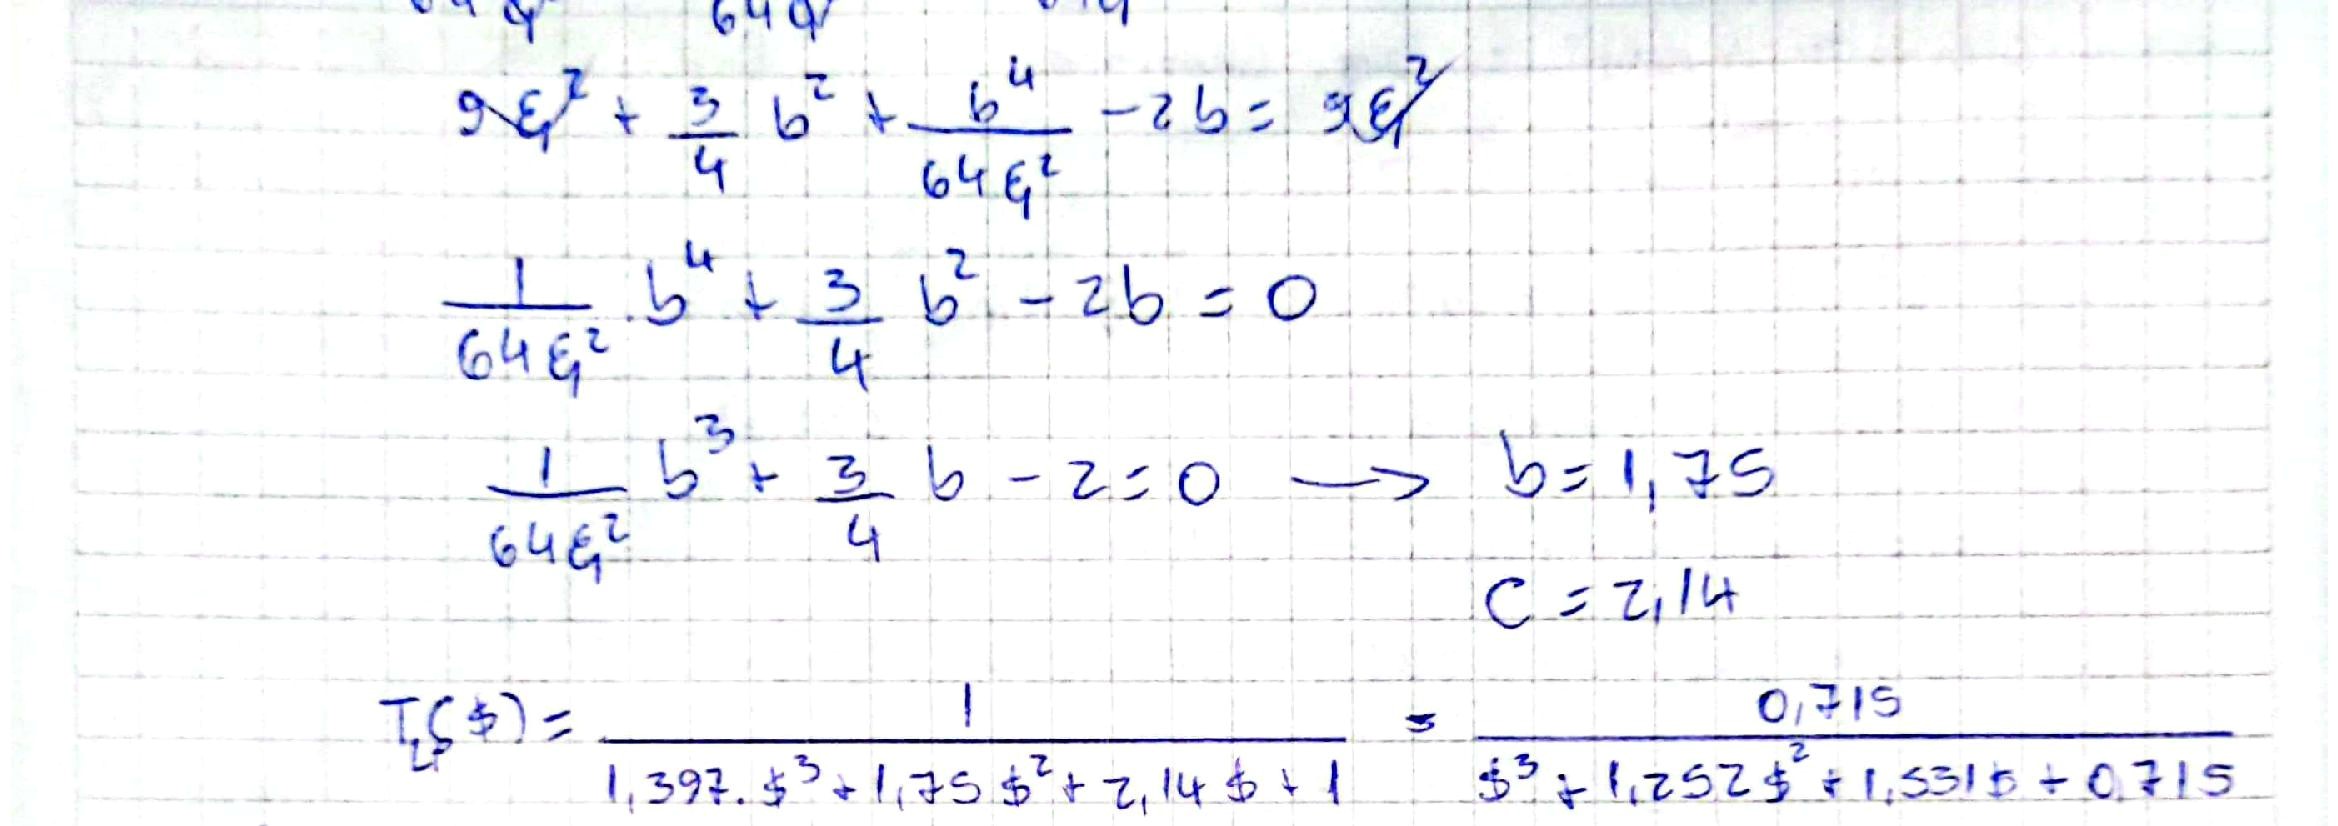 9ε² + 3/4 b² + b⁴/64ε² - 2b = 9ε²
1/64ε² . b⁴ + 3/4 b² - 2b = 0
1/64ε² b³ + 3/4 b - 2 = 0 → b = 1,75
c = 2,14
T($) = 1/(1,397.$³ + 1,75$² + 2,14$ + 1) = 0,715/($³ + 1,252$² + 1,531$ + 0.715)